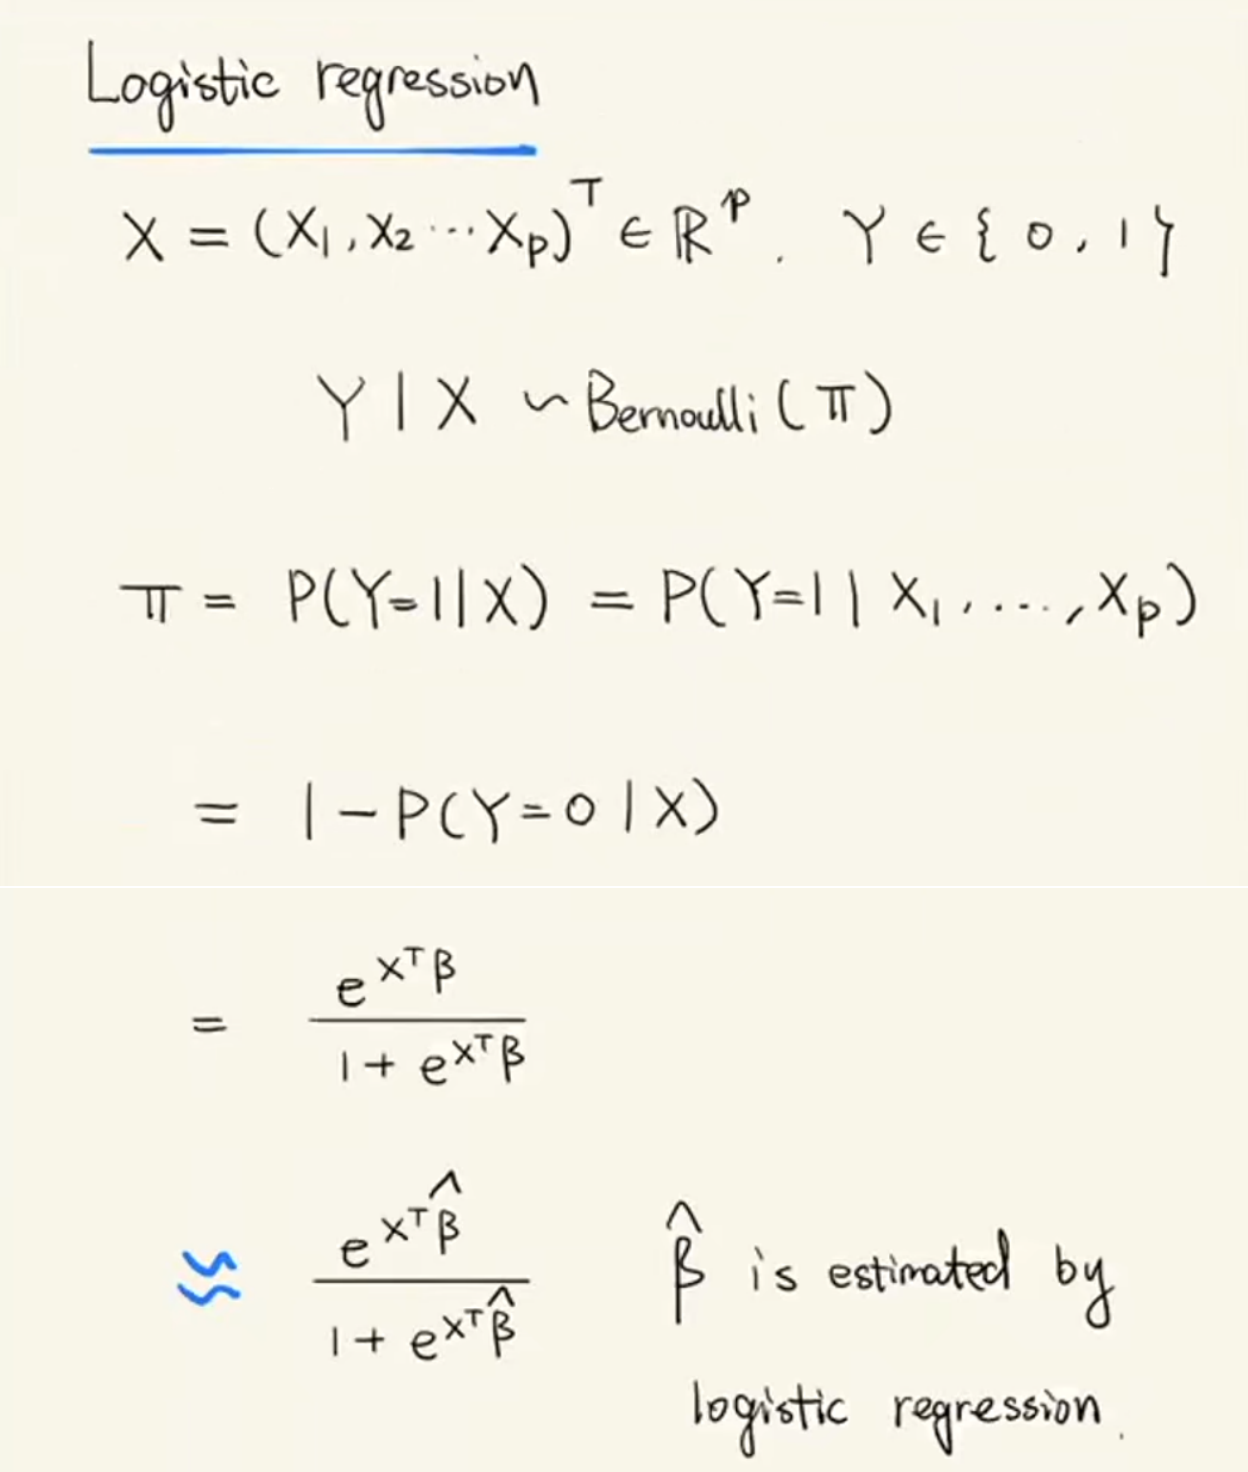 Logistic regression
X = (X₁, X₂ ⋯ Xₚ)ᵀ ∈ ℝᵖ. Y ∈ {0, 1}
Y | X ~ Bernoulli (π)
π = P(Y=1|X) = P(Y=1 | X₁, ..., Xₚ)
= 1 − P(Y=0 | X)
= e^{Xᵀβ} / (1 + e^{Xᵀβ})
≈ e^{Xᵀβ̂} / (1 + e^{Xᵀβ̂}) β̂ is estimated by
logistic regression.